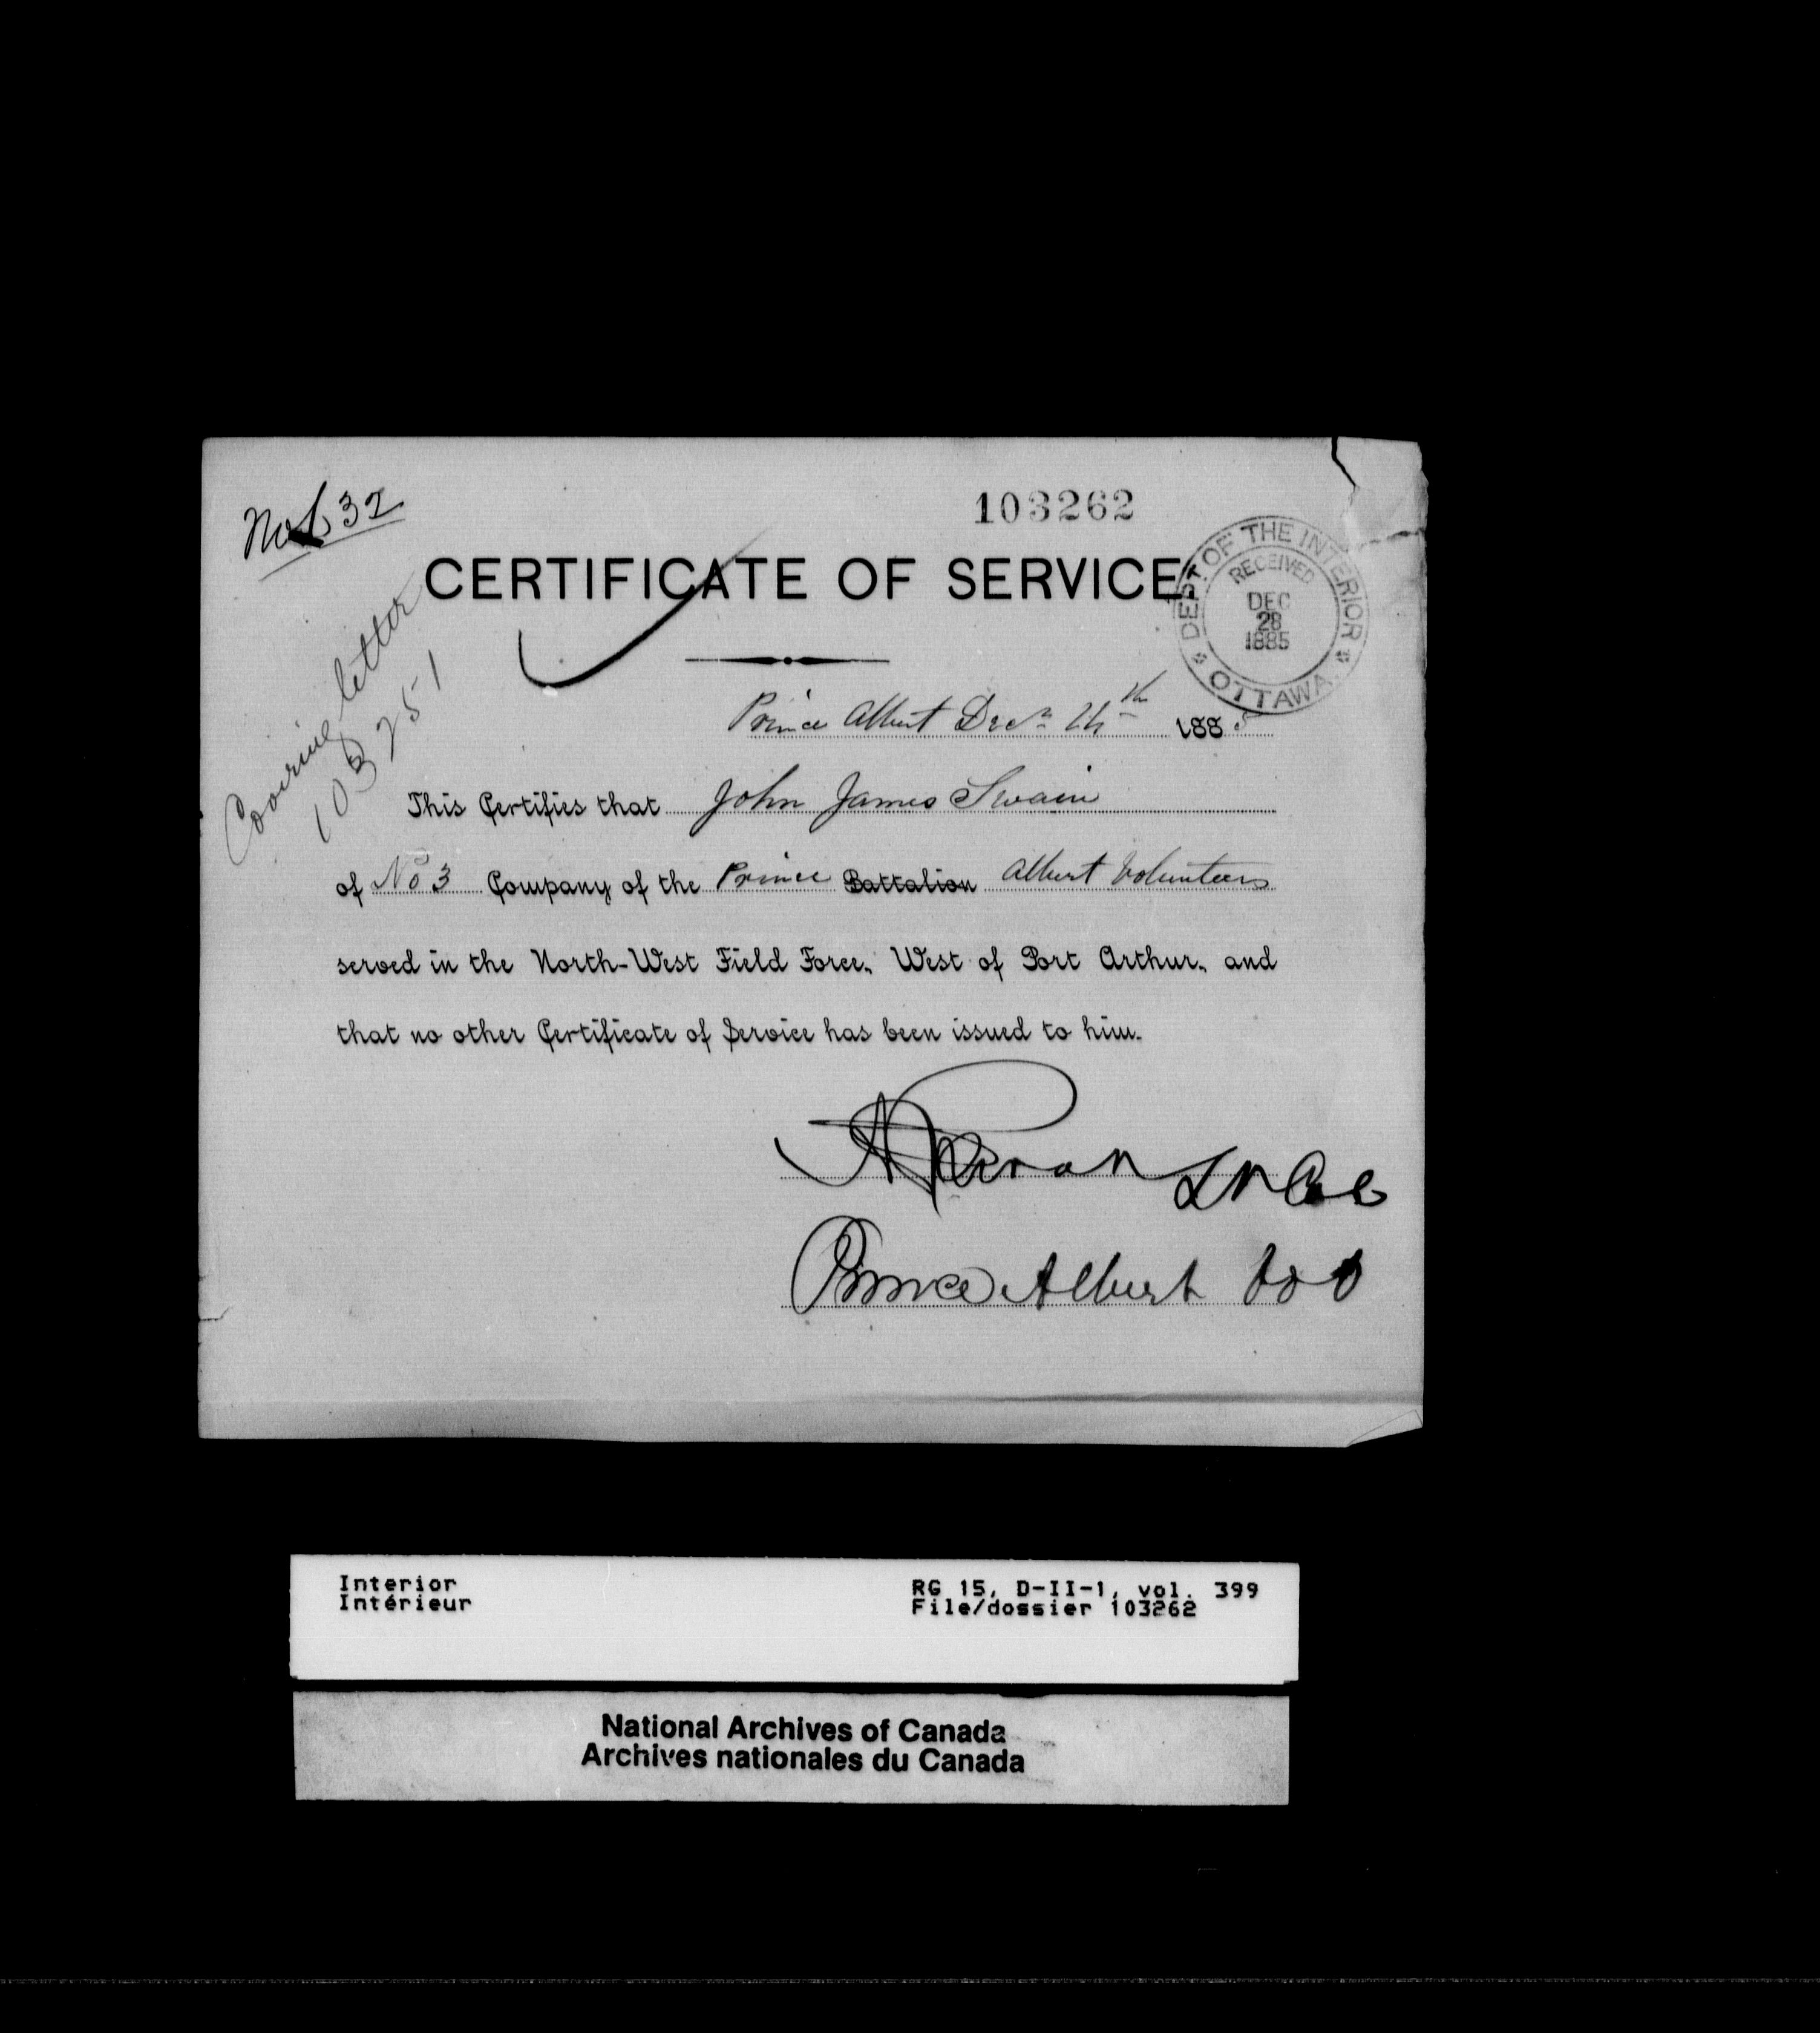 No 32
103262
CERTIFICATE OF SERVICE
DEPT OF THE INTERIOR
RECEIVED
DEC
28
1885
OTTAWA
Covering letter
103251
Prince Albert Decr 14th 1885
This Certifies that John James Swain
of No 3 Company of the Prince Battalion Albert Volunteers
served in the North-West Field Force, West of Port Arthur, and
that no other Certificate of Service has been issued to him.
Lt Col
Prince Albert Vol
Interior
Intérieur
RG 15, D-II-1, vol. 399
File/dossier 103262
National Archives of Canada
Archives nationales du Canada